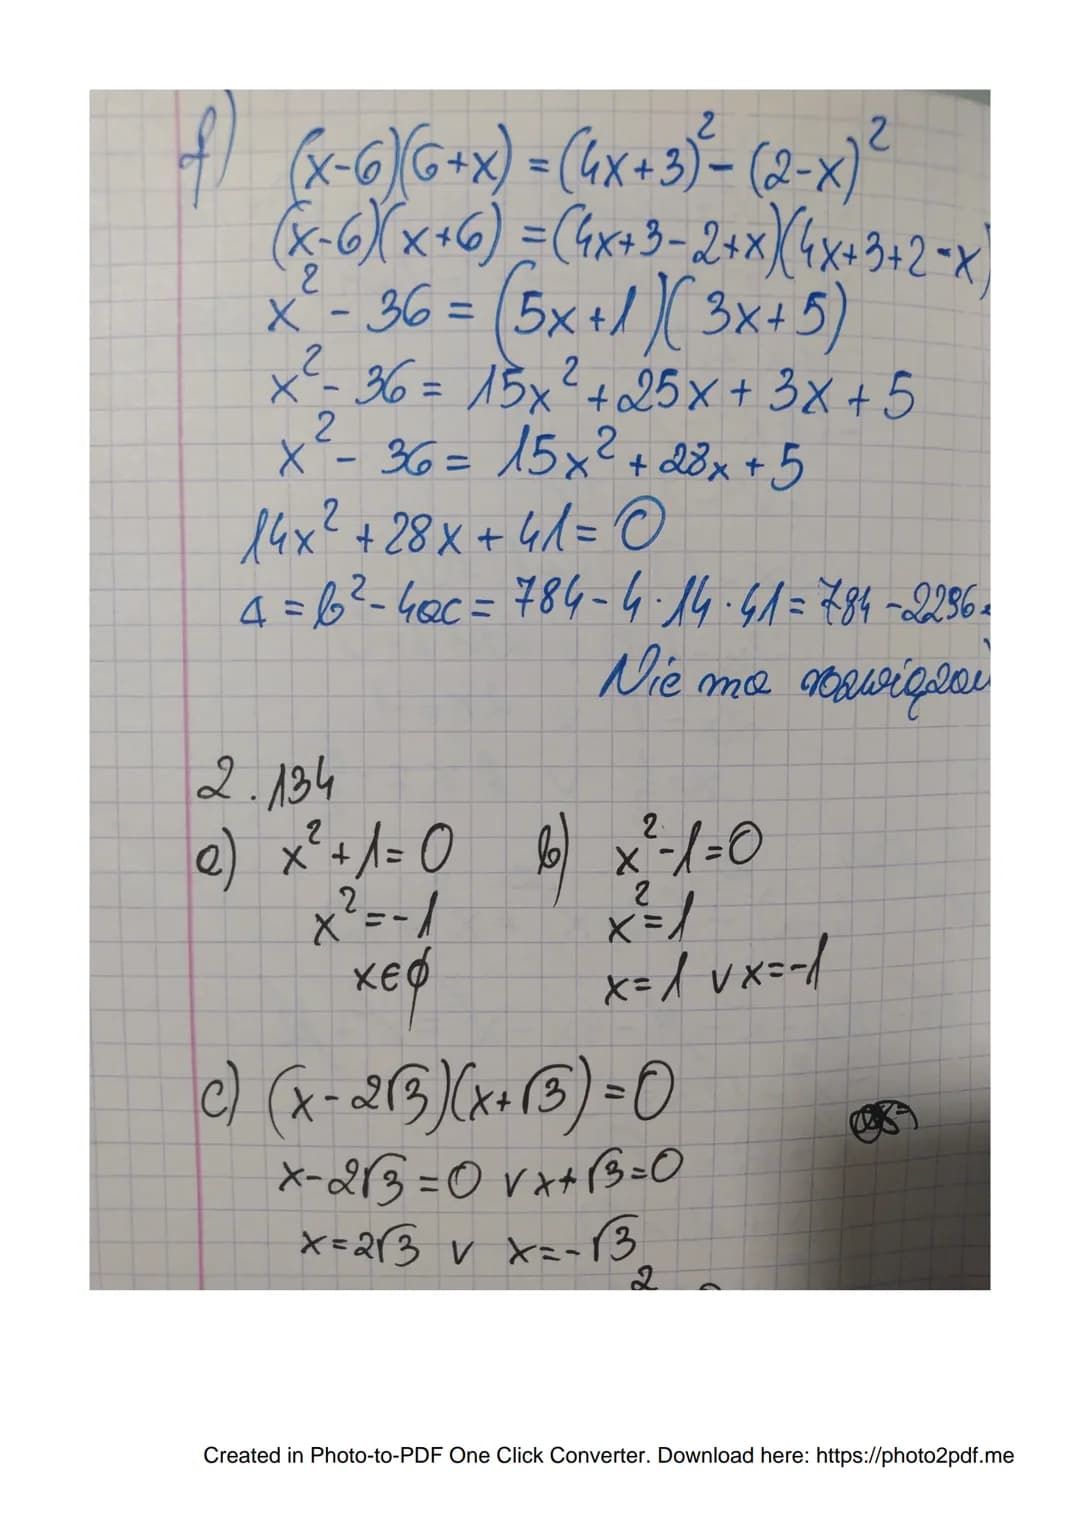 f) (x-6)(6+x) = (4x+3)² - (2-x)²
(x-6)(x+6) = (4x+3-2+x)(4x+3+2-x)
x² - 36 = (5x+1)(3x+5)
x² - 36 = 15x² + 25x + 3x + 5
x² - 36 = 15x² + 28x + 5
14x² + 28x + 41 = 0
Δ = b² - 4ac = 784 - 4·14·41 = 784 - 2296
Nie ma
2.134
a) x² + 1 = 0 b) x² - 1 = 0
x² = -1 x² = 1
x∈∅ x = 1 v x = -1
c) (x - 2√3)(x + √3) = 0
x - 2√3 = 0 v x + √3 = 0
x = 2√3 v x = -√3
2
Created in Photo-to-PDF One Click Converter. Download here: https://photo2pdf.me